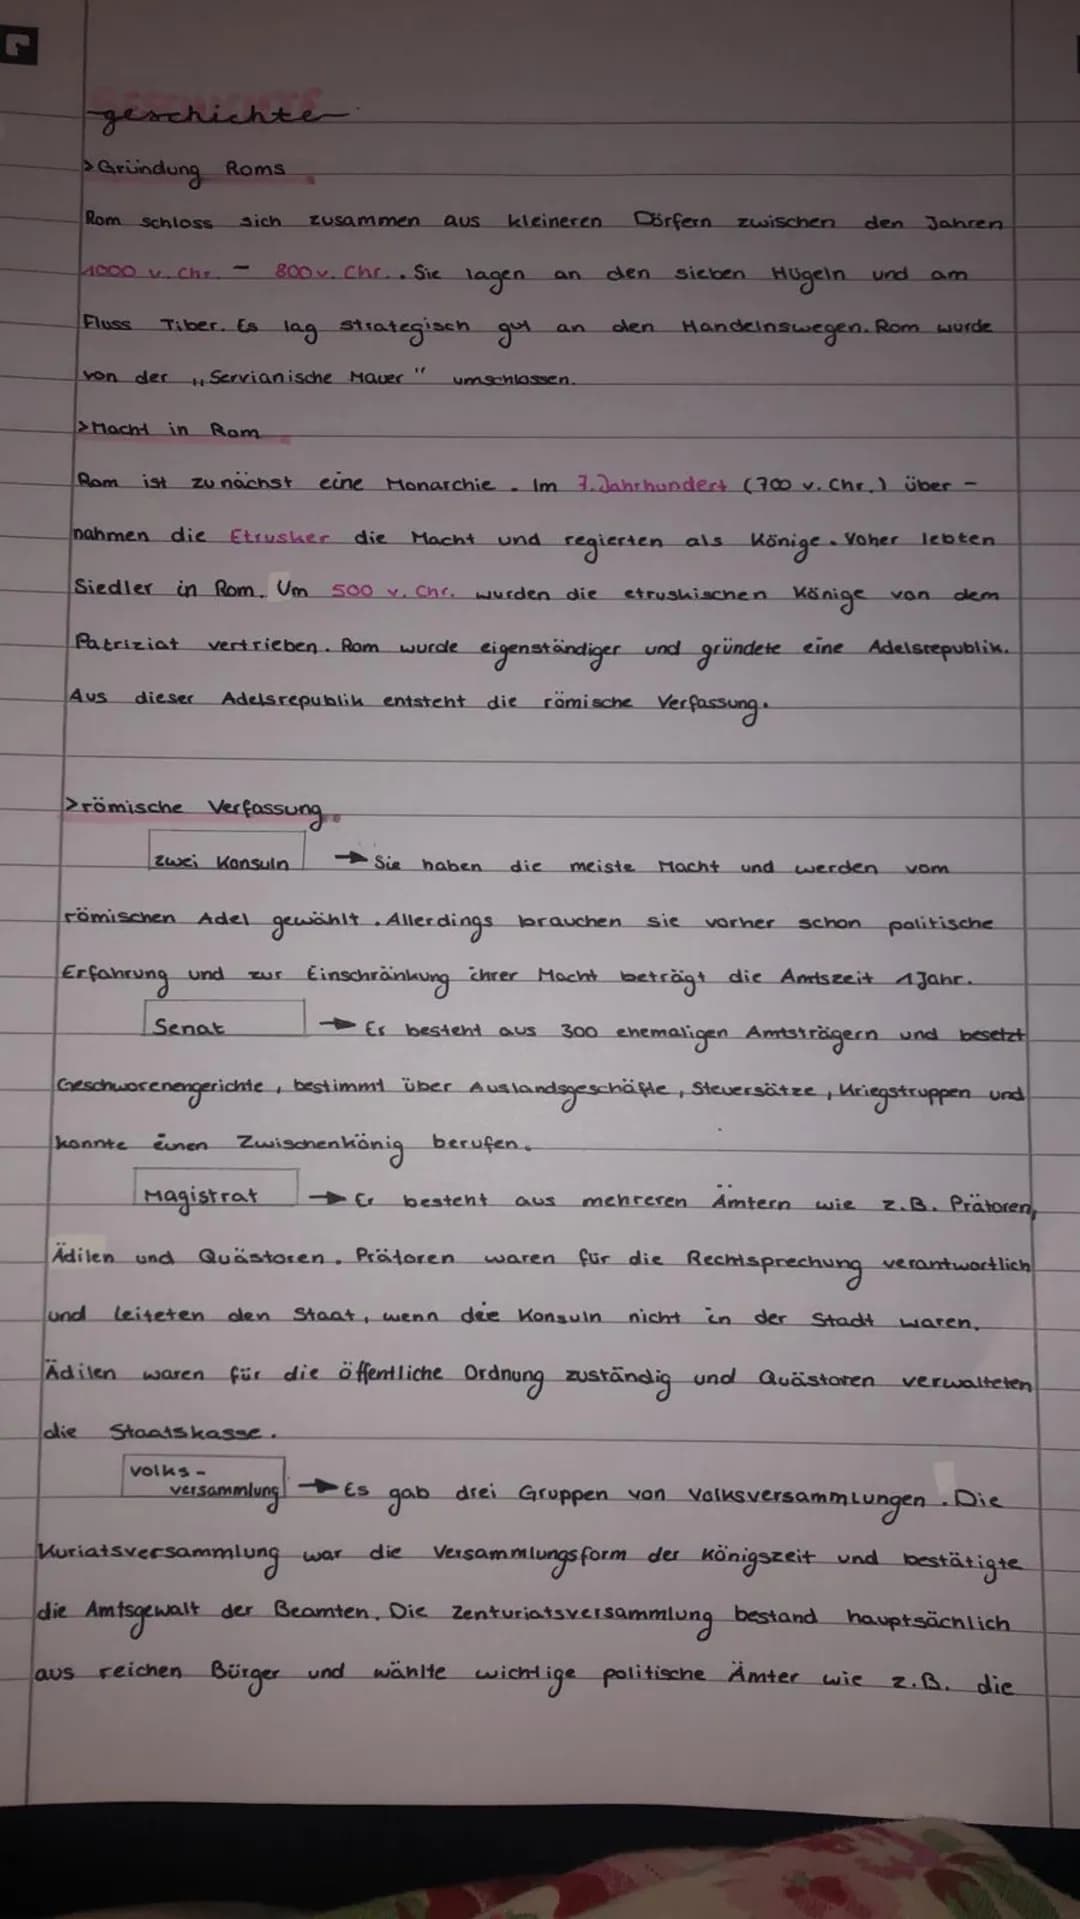 geschichte
>Gründung Roms
Rom schloss sich zusammen aus kleineren Dörfern zwischen den Jahren
1000 v. Chr. - 800 v. Chr.. Sie lagen an den sieben Hügeln und am
Fluss Tiber. Es lag strategisch gut an den Handelnswegen. Rom wurde
von der „Servianische Mauer" umschlossen.
>Macht in Rom
Rom ist zunächst eine Monarchie. Im 7. Jahrhundert (700 v. Chr.) über-
nahmen die Etrusker die Macht und regierten als Könige. Voher lebten
Siedler in Rom. Um 500 v. Chr. wurden die etruskischen Könige von dem
Patriziat vertrieben. Rom wurde eigenständiger und gründete eine Adelsrepublik.
Aus dieser Adelsrepublik entsteht die römische Verfassung.
>römische Verfassung
zwei Konsuln → Sie haben die meiste Macht und werden vom
römischen Adel gewählt. Allerdings brauchen sie vorher schon politische
Erfahrung und zur Einschränkung ihrer Macht beträgt die Amtszeit 1 Jahr.
Senat → Er besteht aus 300 ehemaligen Amtsträgern und besetzt
Geschworenengerichte, bestimmt über Auslandsgeschäfte, Steuersätze, Kriegstruppen und
konnte einen Zwischenkönig berufen.
Magistrat → Er besteht aus mehreren Ämtern wie z.B. Prätoren,
Ädilen und Quästoren. Prätoren waren für die Rechtsprechung verantwortlich
und leiteten den Staat, wenn die Konsuln nicht in der Stadt waren.
Ädilen waren für die öffentliche Ordnung zuständig und Quästoren verwalteten
die Staatskasse.
Volks-
versammlung → Es gab drei Gruppen von Volksversammlungen. Die
Kuriatsversammlung war die Versammlungsform der Königszeit und bestätigte
die Amtsgewalt der Beamten. Die Zenturiatsversammlung bestand hauptsächlich
aus reichen Bürger und wählte wichtige politische Ämter wie z.B. die